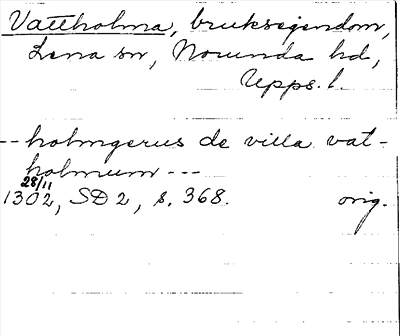 Vattholma, bruksegendom,
Lena sn, Norunda hd,
Upps. l.
-- holmgerus de villa vat-
holmum ---
28/11
1302, SD 2, s. 368. orig.